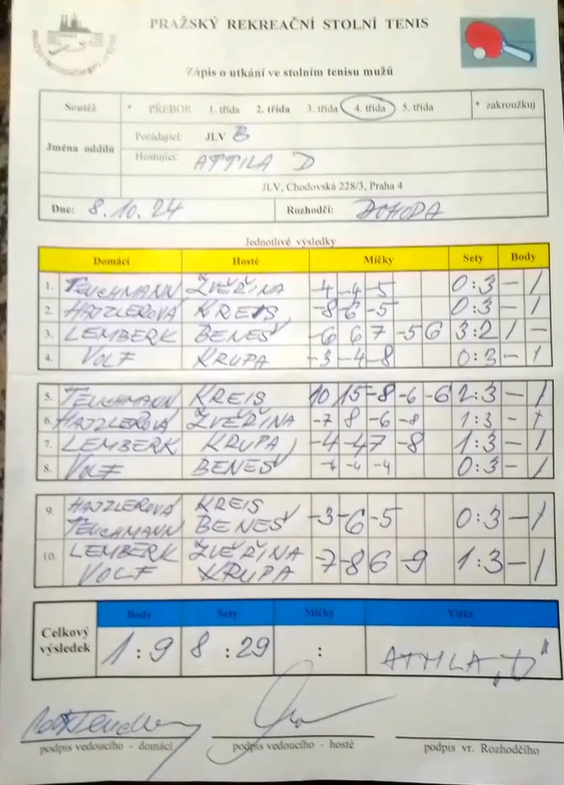 PRAŽSKÝ REKREAČNÍ STOLNÍ TENIS
Zápis o utkání ve stolním tenisu mužů
Soutěž * PŘEBOR 1. třída 2. třída 3. třída 4. třída 5. třída * zakroužkuj
Jména oddílů
Pořádající: JLV B
Hostující: ATTILA D
JLV, Chodovská 228/3, Praha 4
Dne: 8.10.24 Rozhodčí: DOHODA
Jednotlivé výsledky
Domácí Hosté Míčky Sety Body
1. TEUCHMANN ZVĚŘINA -4 -4 -5 0:3 - 1
2. HAJZLEROVÁ KREIS -8 -6 -5 0:3 - 1
3. LEMBERK BENEŠ -6 6 7 -5 6 3:2 1 -
4. VOLF KRUPA -3 -4 -8 0:3 - 1
5. TEUCHMANN KREIS 10 15 -8 -6 -6 2:3 - 1
6. HAJZLEROVÁ ZVĚŘINA -7 8 -6 -8 1:3 - 1
7. LEMBERK KRUPA -4 -4 7 -8 1:3 - 1
8. VOLF BENEŠ -4 -4 0:3 - 1
9. HAJZLEROVÁ KREIS
TEUCHMANN BENEŠ -3 -6 -5 0:3 - 1
10. LEMBERK ZVĚŘINA
VOLF KRUPA -7 -8 6 -9 1:3 - 1
Body Sety Míčky Vítěz
Celkový výsledek 1:9 8:29 : ATTILA „D"
podpis vedoucího - domácí podpis vedoucího - hosté podpis vr. Rozhodčího